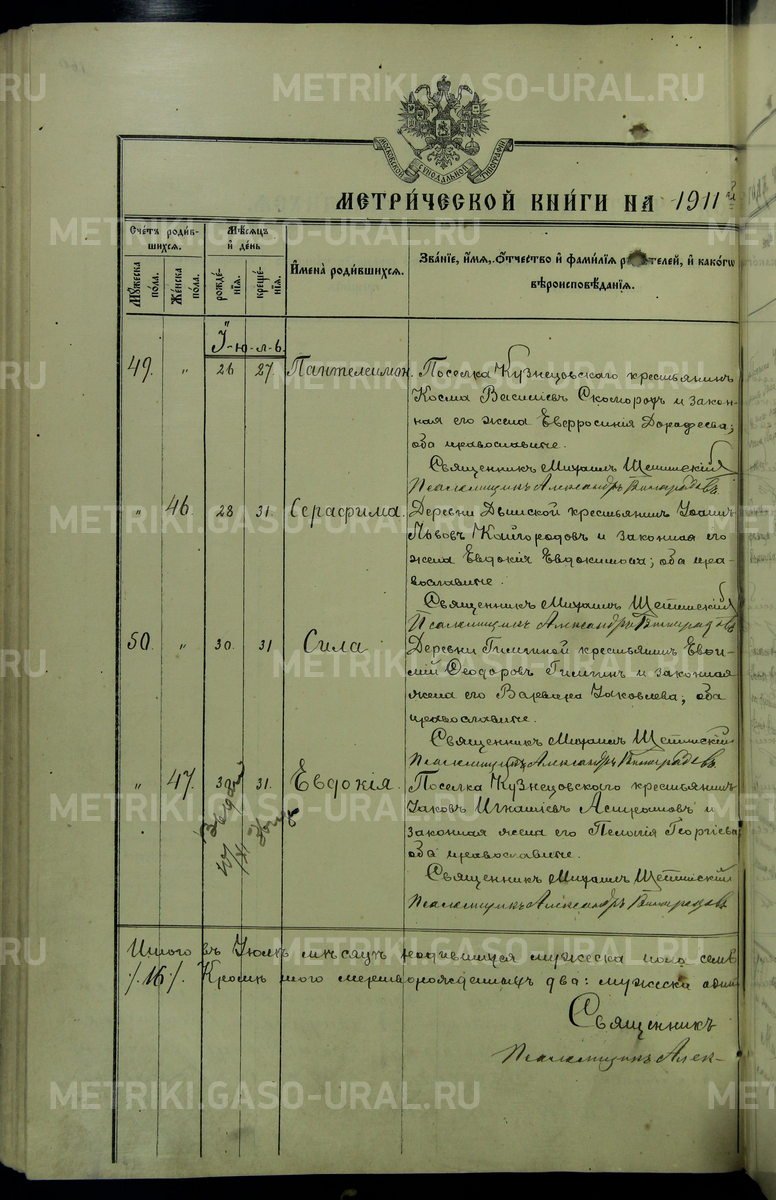 МОСКОВСКОЙ СѴНОДАЛЬНОЙ ТИПОГРАФІИ
МЕТРИ́ЧЕСКОЙ КНИ́ГИ НА 1911й
Сче́тъ роди́в-
шихся.
Мѣ́сяцъ
и҆ де́нь
Мꙋ́жеска по́ла.
Же́нска по́ла.
рожде́-нїя.
креще́-нїя.
И҆мена̀ роди́вшихся.
Зва́нїе, и҆́мя, ѻ҆́тчество и҆ фами́лїя телей, и҆ како́гѡ
вѣроисповѣ́данїя.
І-ю-л-ь.
49. " 26 27. Пантелеимон. Поселка Кузнецовскаго крестьянинъ
Косма Васильевъ Скоморохъ и закон-
ная его жена Евфросинія Дорофеева;
оба православные.
Священникъ Михаилъ
Псаломщикъ Александръ Виноградовъ
" 46. 28 31. Серафима. Деревни крестьянинъ Іоаннъ
Львовъ Кайгородовъ и законная его
жена Евдокія Евдокимова; оба пра-
вославные.
Священникъ Михаилъ
Псаломщикъ Александръ Виноградовъ
50. " 30. 31 Сила. Деревни крестьянинъ Евѳи-
мій Ѳеодоровъ и законная
жена его Варвара Іаковлева; оба
православные.
Священникъ Михаилъ
Псаломщикъ Александръ Виноградовъ
" 47. 31. Евдокія. Поселка Кузнецовского крестьянинъ
Іаковъ Игнатіевъ и
законная жена его Пелагія Георгіева
оба православные.
Священникъ Михаилъ
Псаломщикъ Александръ Виноградовъ
Итого въ Іюлѣ мѣсяцѣ родившихся мужеска пола семь
/.16/. Кромѣ того мертворожденныхъ два: мужеска одинъ
Священникъ
Псаломщикъ Алек-
METRIKI.GASO-URAL.RU